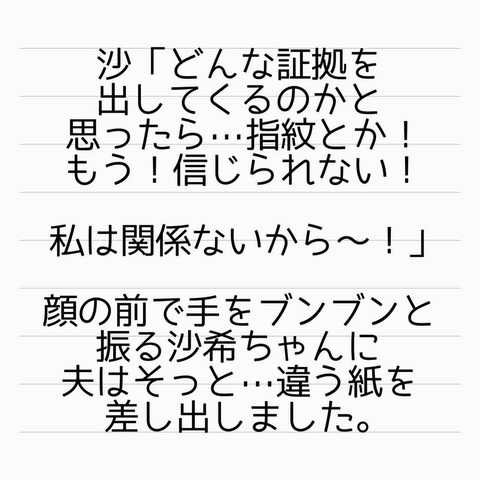 沙「どんな証拠を
出してくるのかと
思ったら…指紋とか！
もう！信じられない！
私は関係ないから〜！」
顔の前で手をブンブンと
振る沙希ちゃんに
夫はそっと…違う紙を
差し出しました。